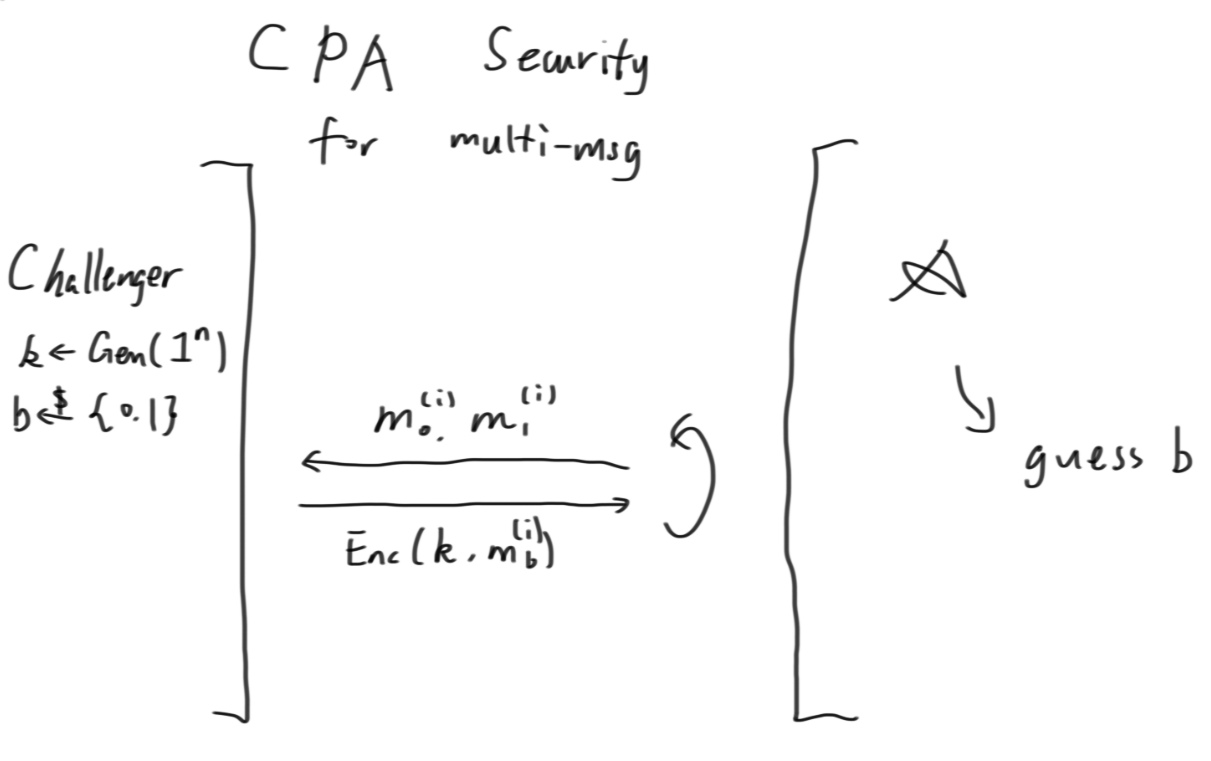 CPA Security
for multi-msg
Challenger
k ← Gen(1ⁿ)
b ←$ {0.1}
m₀^(i). m₁^(i)
Enc(k, m_b^(i))
A
guess b